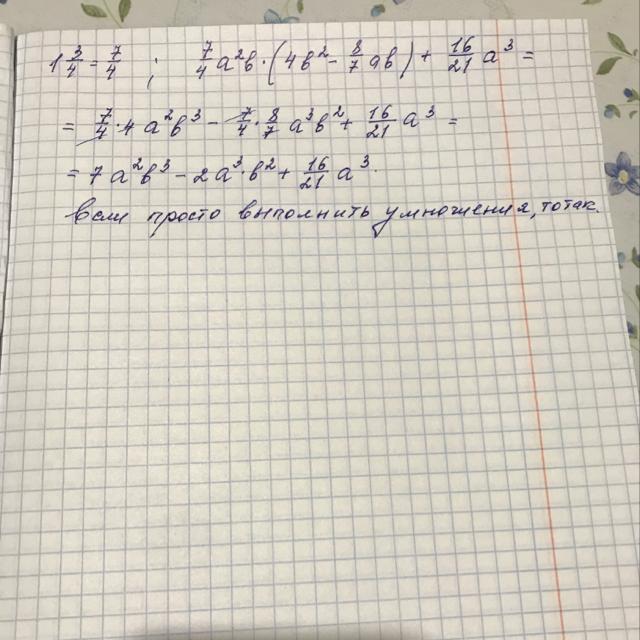 1 3/4 = 7/4 ; 7/4 a²b·(4b² - 8/7 ab) + 16/21 a³ =
= 7/4 · 4 a²b³ - 7/4 · 8/7 a³b² + 16/21 a³ =
= 7a²b³ - 2a³·b² + 16/21 a³.
Если просто выполнить умножения, то так.